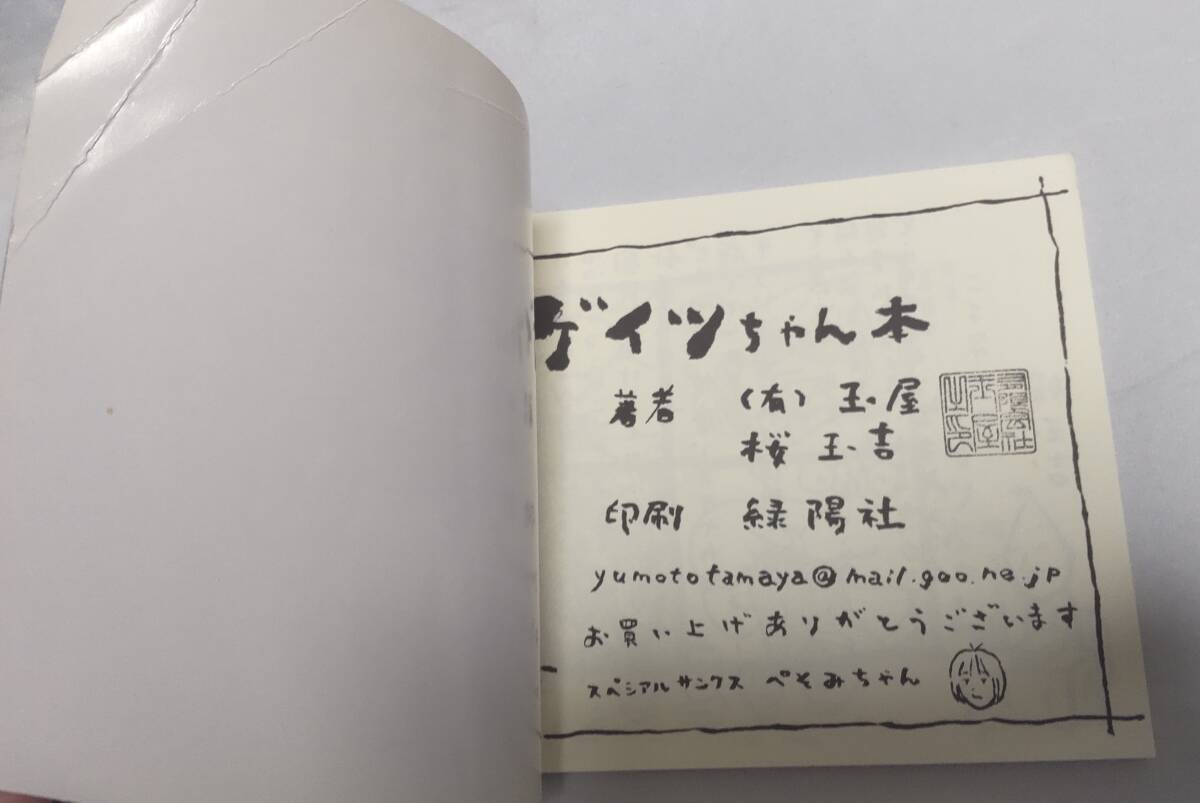 ゲイツちゃん本
著者 (有) 玉屋
桜玉吉
印刷 緑陽社
yumototamaya@mail.goo.ne.jp
お買い上げありがとうございます
スペシャルサンクス ぺそみちゃん